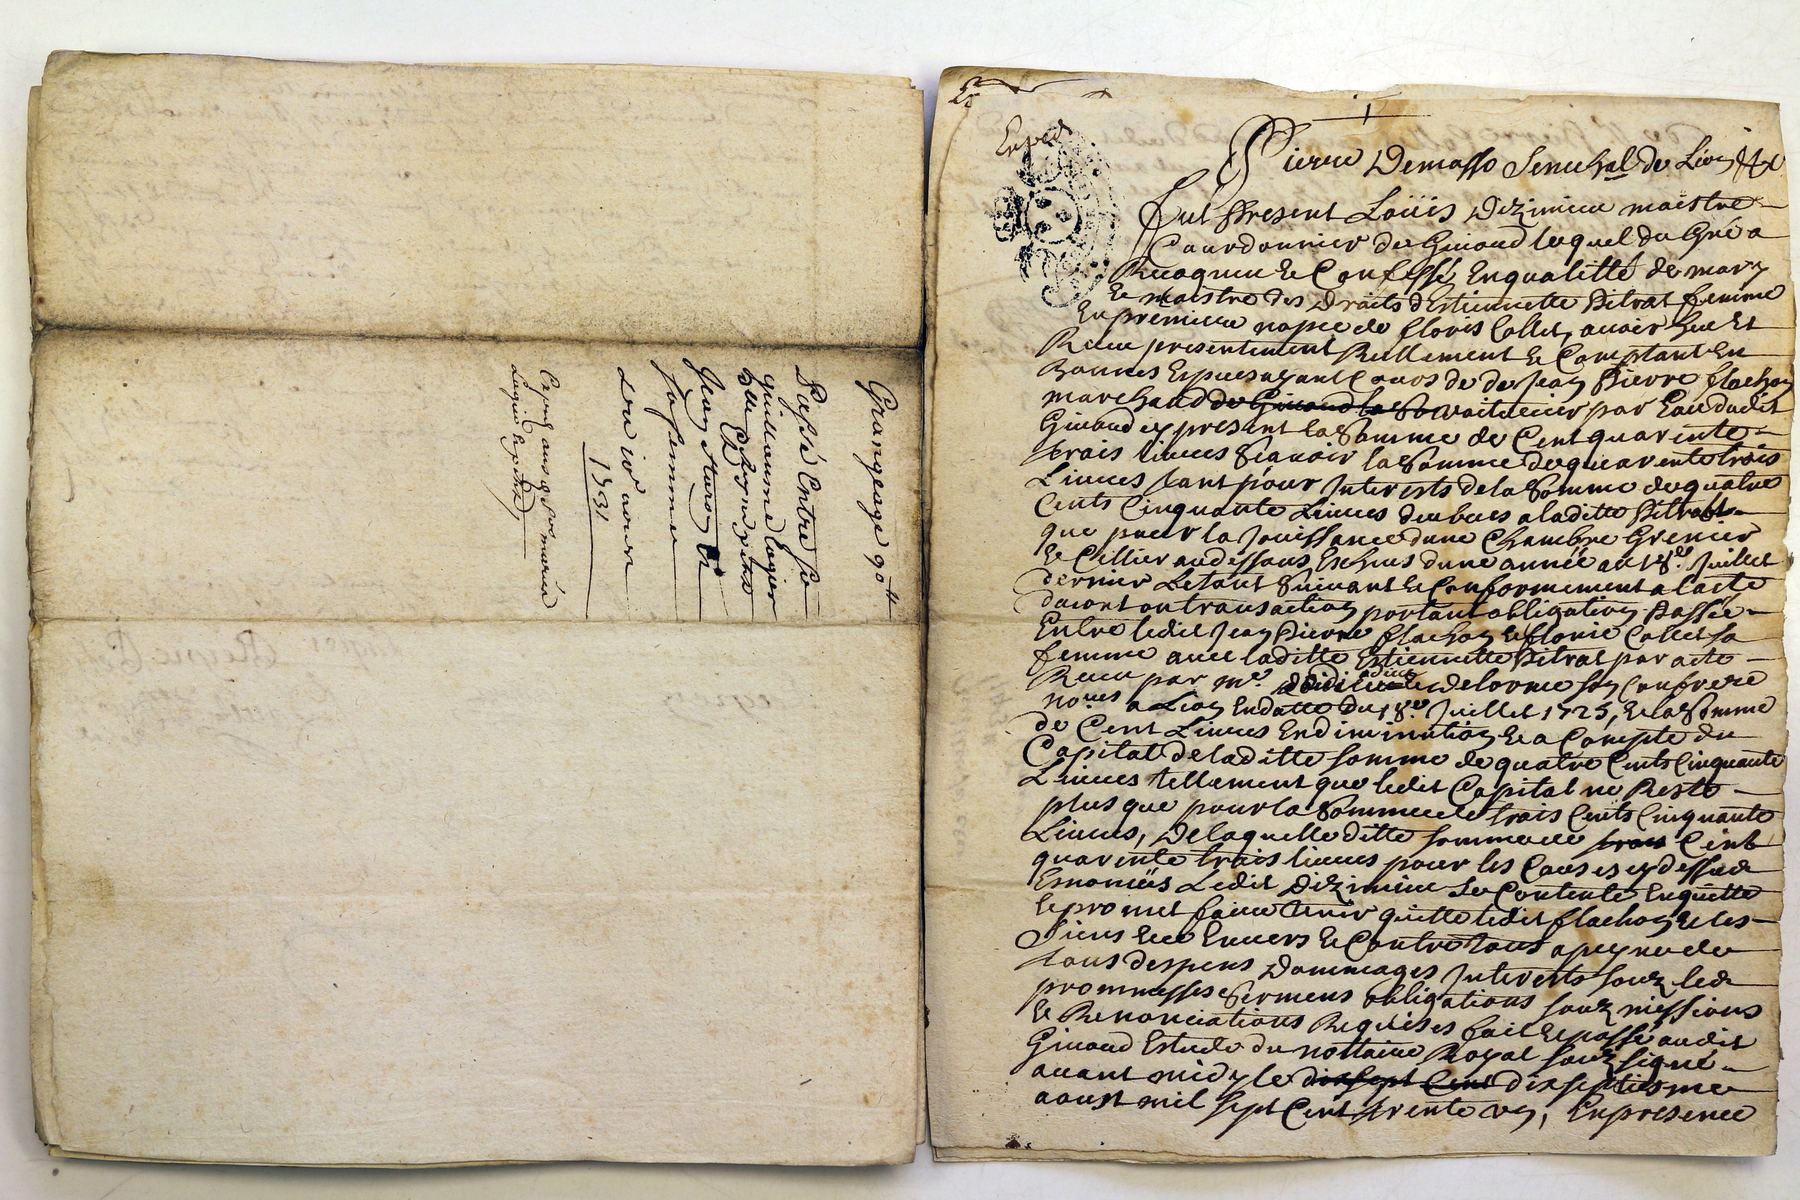 Grangeage 90tt
Passé Entre sr
guillaume Logier
Jean
sa femme
Du 10e aoust
1731
Exped
Pierre Demasso Senechal de Lion &c
Fut Present Loüis Dizimieu maistre
Courdonnier de Givord lequel de Gré a
Recognu et Confessé Enqualitté de mary
et maistre des Droits d'Estiennette Pitrat femme
En premiere nopce de Floris Collet, avoir heu et
Receu presentement Reellement et Comptant En
Bonnes Especes ayant Cours de Sr Jean Pierre flachon
marchand de Givord la So voiturier par Eau dudit
Givord cy present la Somme de Cent quarente
trois livres Scavoir la Somme de quarente trois
Livres tant pour Interests de la Somme de quatre
Cents Cinquante Livres deubues a laditte Pitrat
que pour la Jouissance dune Chambre Grenier
et Cillier audessous Escheus dune année au 18e Juillet
dernier Letout Suivant et Conformement a lacte
portant obligation Passée
Entre ledit Jean Pierre flachon et florie Collet sa
femme avec laditte Estiennette Pitrat par acte
Receu par Me Delorme son Confrere
nores a Lion Endatte du 18e Juillet 1725, et la Somme
de Cent Livres En diminution et a Compte du
Capital de laditte somme de quatre Cents Cinquante
Livres tellement que ledit Capital ne Reste
plus que pour la Somme de trois Cents Cinquante
Livres, De laquelle ditte somme de trois Cent
quarente trois livres pour les Causes cy dessus
Enoncées Ledit Dizimieu Se Contente Enquitte
et promet faire tenir quitte ledit flachon et les
Siens Envers et Contre tous a peyne de
tous despens Dommages Interests souz les
promesses Serments obligations souzmissions
et Renonciations Requises fait et passé audit
Givord Estude du nottaire Royal souzsigné
avant midy le dixsept Cent dixseptiesme
aoust mil sept Cent trente un, En presence